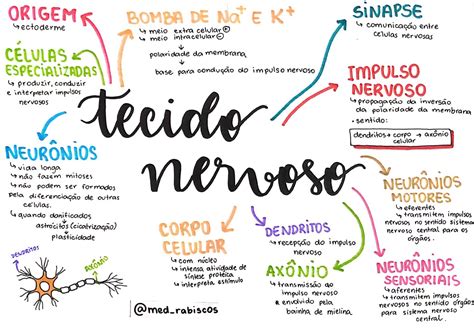 ORIGEM
↳ ectoderme
CÉLULAS
ESPECIALIZADAS
↳ produzir, conduzir
e interpretar impulsos
nervosos
BOMBA DE Na⁺ E K⁺
↳ meio extra celular ⊕
↳ meio intracelular ⊖
↳ polaridade da membrana
↳ base para condução do impulso nervoso
SINAPSE
↳ comunicação entre
células nervosas
IMPULSO
NERVOSO
↳ propagação da inversão
da polaridade da membrana
• sentido:
dendritos → corpo → axônio
celular
tecido
nervoso
NEURÔNIOS
↳ vida longa
↳ não fazem mitoses
↳ não podem ser formados
pela diferenciação de outras
células.
↳ quando danificados
astrócitos (cicatrização)
↳ plasticidade
DENDRITOS
AXÔNIO
CORPO
CELULAR
↳ com núcleo
↳ intensa atividade de
síntese proteica
↳ interpreta estímulo
DENDRITOS
↳ recepção do impulso
nervoso
AXÔNIO
↳ transmissão do
impulso nervoso
↳ envolvido pela
bainha de mielina.
NEURÔNIOS
MOTORES
↳ eferentes
↳ transmitem impulsos
nervosos no sentido sistema
nervoso central para os
órgãos.
NEURÔNIOS
SENSORIAIS
↳ aferentes
↳ transmitem impulsos
nervosos no sentido órgãos
para sistema nervoso
central.
@med_rabiscos